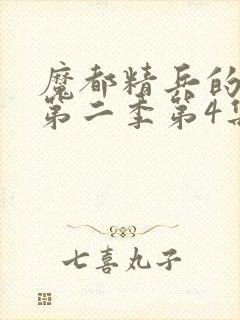 魔都精兵的
第二季第4集
七喜丸子